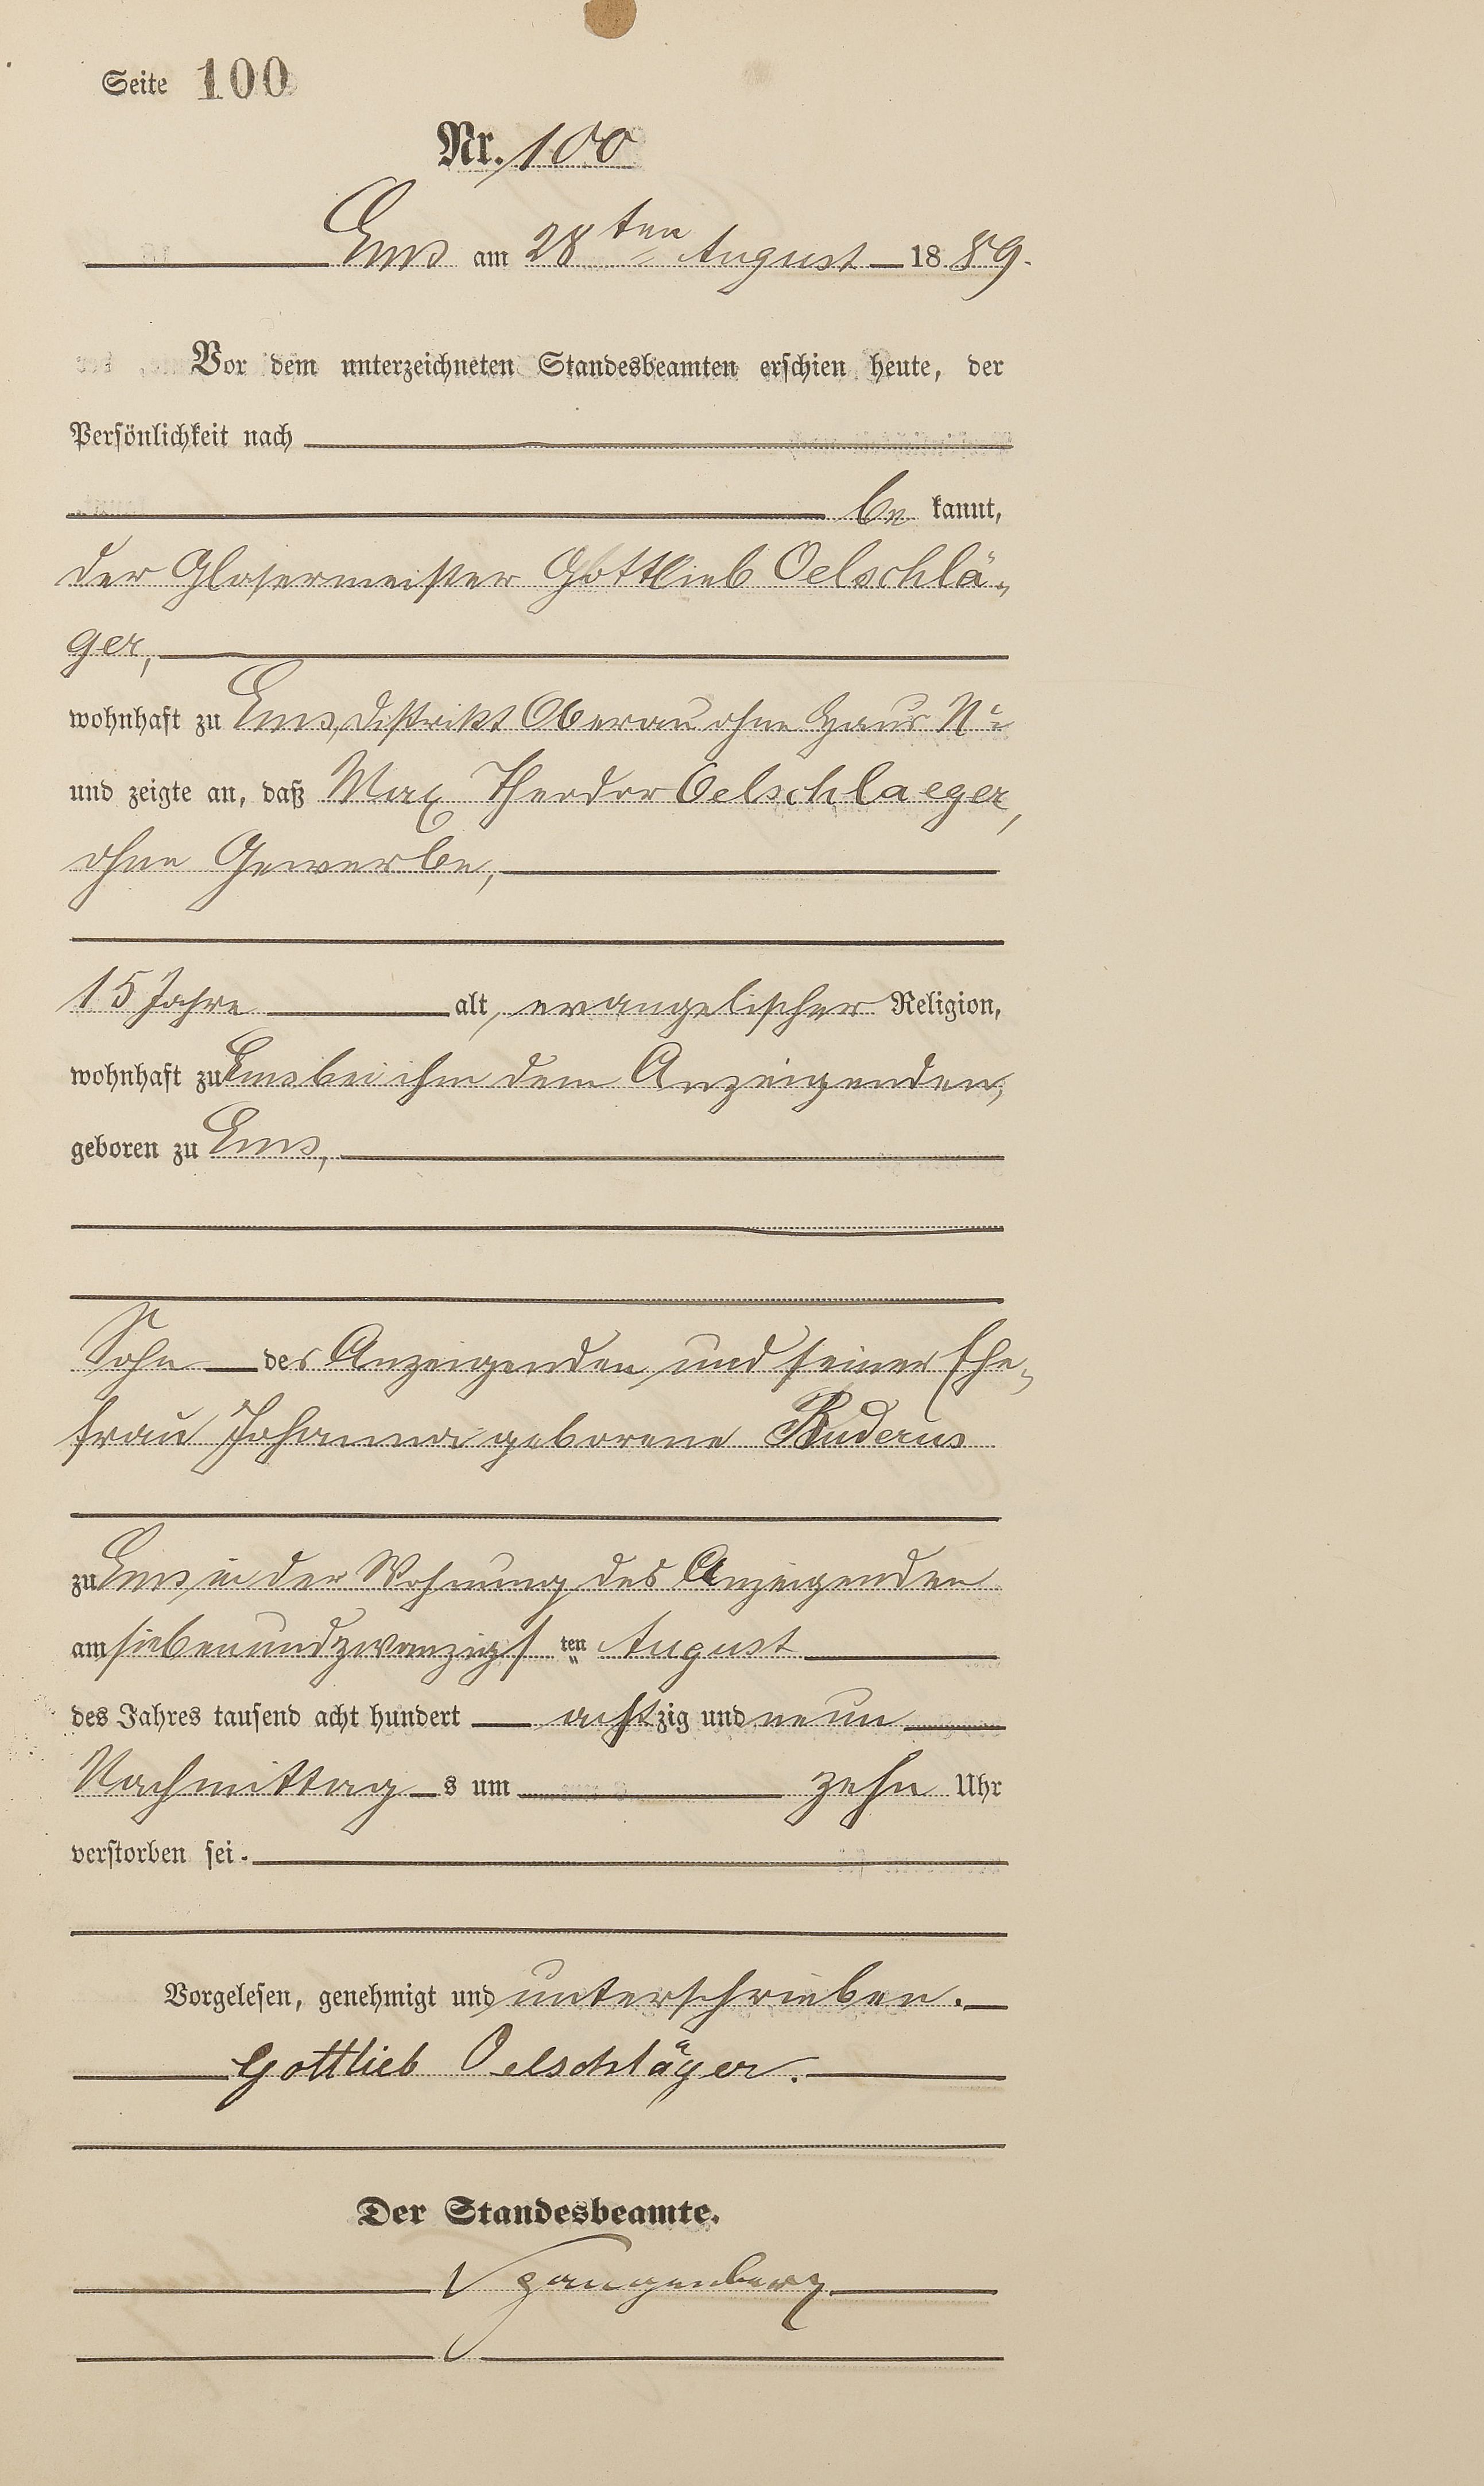 Seite 100
Nr. 100
Ems am 28ten August 1889.
Vor dem unterzeichneten Standesbeamten erschien heute, der
Persönlichkeit nach
be kannt,
der Glasermeister Gottlieb Oelschlä-
ger,
wohnhaft zu Ems, Distrikt Oberau ohne Haus No
und zeigte an, daß Max Theodor Oelschlaeger,
ohne Gewerbe,
15 Jahre alt, evangelischer Religion,
wohnhaft zu Ems bei ihm dem Anzeigenden,
geboren zu Ems,
Sohn des Anzeigenden und seiner Ehe-
frau Johanna geborene Buderus
zu Ems in der Wohnung des Anzeigenden
am siebenundzwanzigsten August
des Jahres tausend acht hundert achtzig und neun
Nachmittags um zehn Uhr
verstorben sei.
Vorgelesen, genehmigt und unterschrieben.
Gottlieb Oelschläger.
Der Standesbeamte.